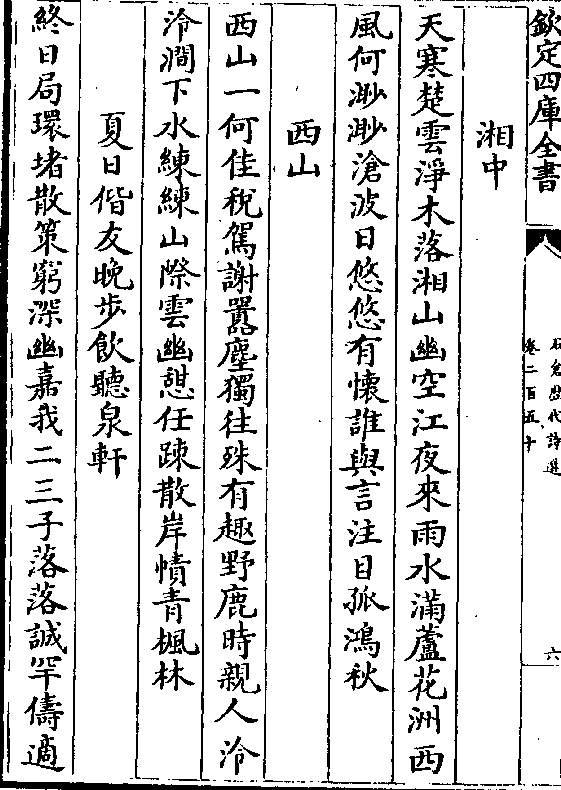 欽定四庫全書
石倉歴代詩選
卷二百五十
六
湘中
天寒楚雲淨木落湘山幽空江夜來雨水滿蘆花洲西
風何渺渺滄波日悠悠有懷誰與言注目孤鴻秋
西山
西山一何佳稅駕謝嚣塵獨往殊有趣野鹿時親人泠
泠澗下水練練山際雲幽憇任踈散岸幘青楓林
夏日偕友晚步飲聽泉軒
終日局環堵散策窮深幽嘉我二三子落落誠罕儔適